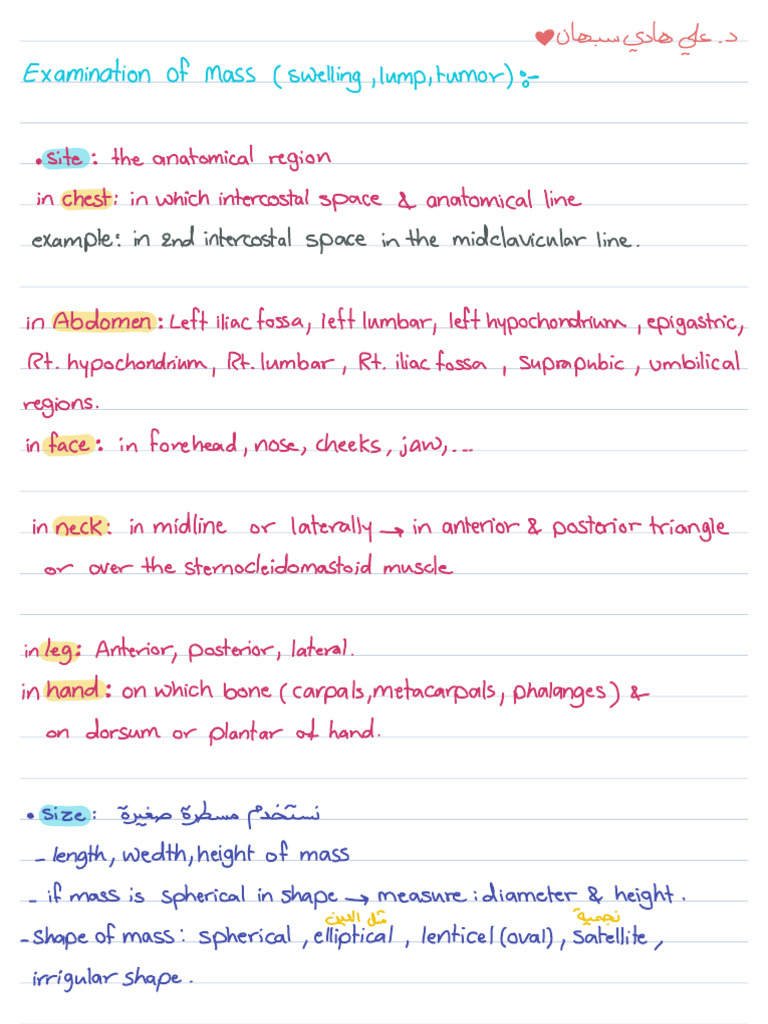 د. علي هادي سبهان ❤
Examination of Mass (swelling, lump, tumor):-
• site: the anatomical region
in chest: in which intercostal space & anatomical line
example: in 2nd intercostal space in the midclavicular line.
in Abdomen: Left iliac fossa, left lumbar, left hypochondrium, epigastric,
Rt. hypochondrium, Rt. lumbar, Rt. iliac fossa, suprapubic, umbilical
regions.
in face: in forehead, nose, cheeks, jaw,...
in neck: in midline or laterally → in anterior & posterior triangle
or over the sternocleidomastoid muscle
in leg: Anterior, posterior, lateral.
in hand: on which bone (carpals, metacarpals, phalanges) &
on dorsum or plantar of hand.
• size: نستخدم مسطرة صغيرة
- length, wedth, height of mass
- if mass is spherical in shape → measure: diameter & height.
مثل العين نجمية
- shape of mass: spherical, elliptical, lenticel (oval), satellite,
irrigular shape.